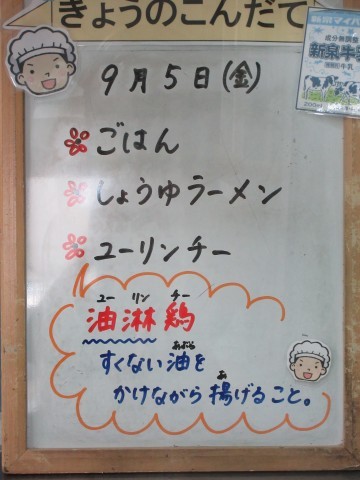 きょうのこんだて
9月5日(金)
ごはん
しょうゆラーメン
ユーリンチー
ユー リン チー
油淋鶏
あぶら
すくない油を
あ
かけながら揚げること。
成分無調整
新泉牛乳
200ml